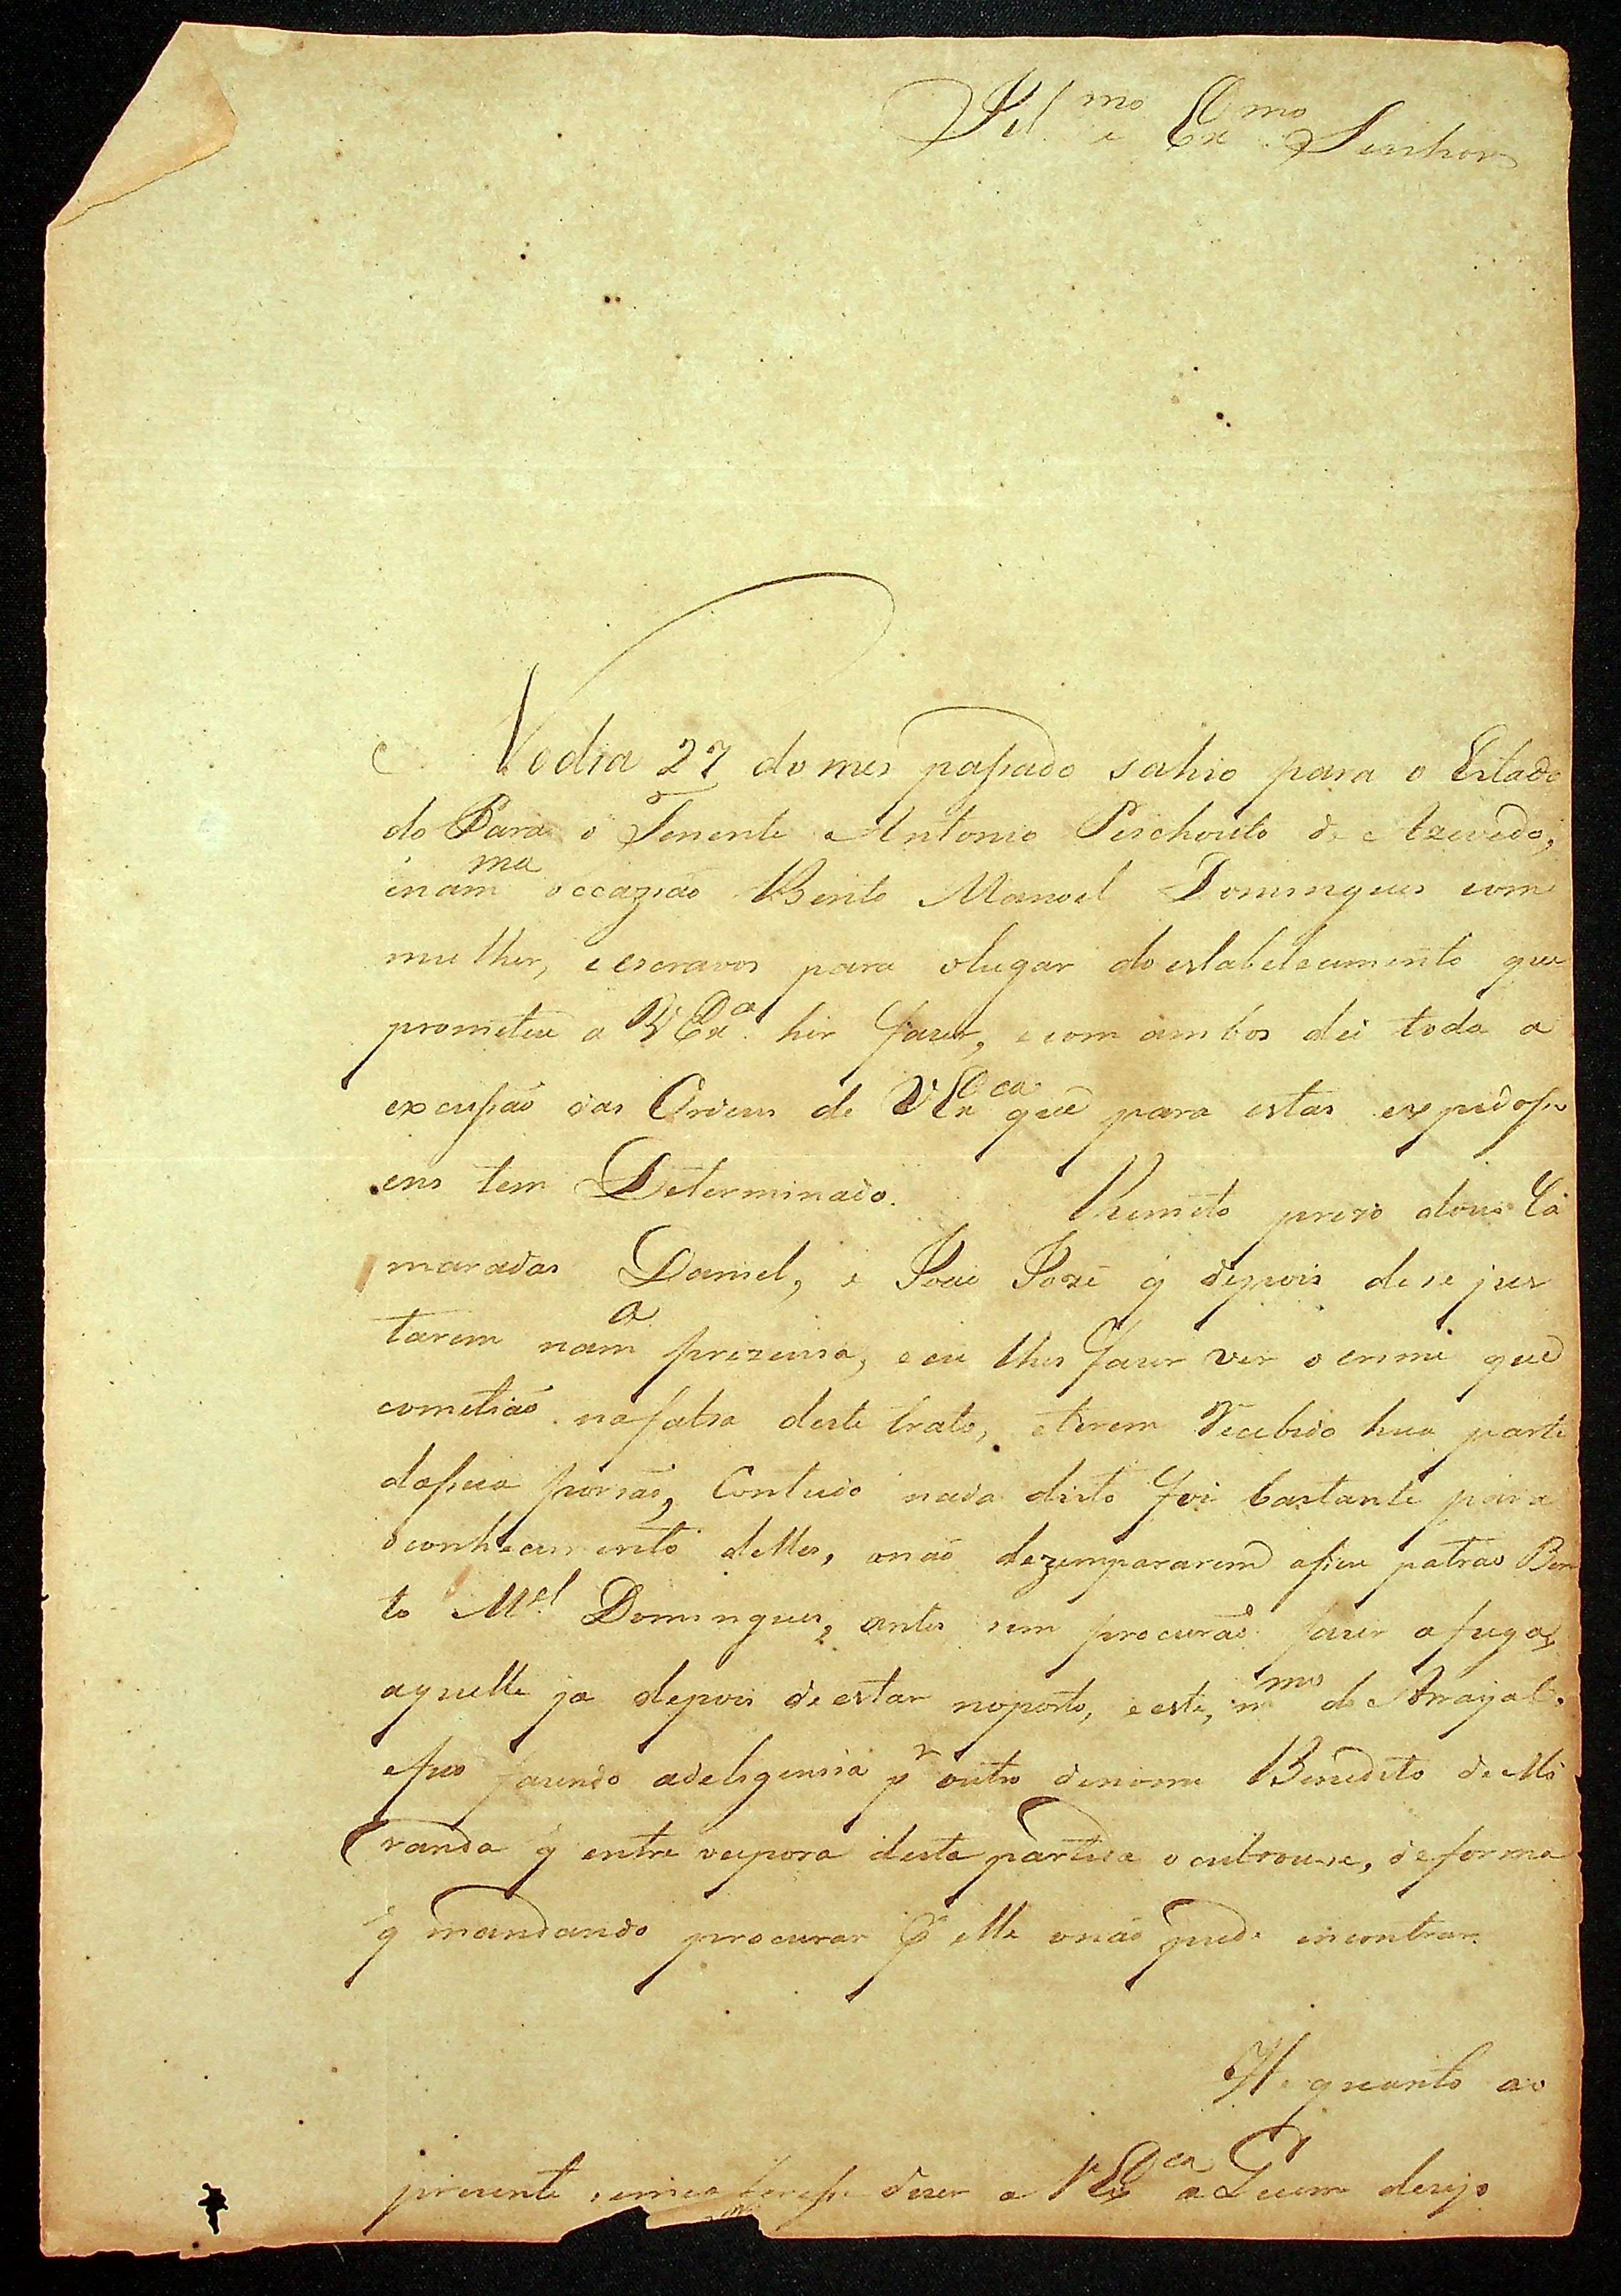 Ill.mo e Ex.mo Senhor
No dia 27 do mes passado sahio para o Estado
do Pará o Tenente Antonio Peichouto de Azevedo,
e na m.ma occazião Bento Manoel Domingues com
mulher, e escravos para o lugar do estabelecimento que
prometeu a V Ex.a hir fazer, e com ambos dei toda a
excusão das Ordens de V Ex.ca que para estas expedoss
ens tem Determinado. Remeto prezo dous Ca
maradas Daniel, e José q̃ depois de se jus
tarem na m.a prezensa, e eu lhes fazer ver o crime que
cometião na falta deste trato, e terem recebido hua parte
da sua porsão, Contudo nada disto foi bastante para
o conhecimento delles, o não dezempararem a seu patrão Ben
to M.el Domingues, antes sim procurão fazer a fuga,
aquelle ja depois de estar no porto, e este, m.mo do Arrayal.
e fico fazendo a deligensia p.r outro de nome Benedito de Mi
randa q̃ entre vespora desta partida ocultouse, de forma
q̃ mandando procurar p.r elle o não pude encontrar.
He quanto ao
prezente se me oferesse dizer a V Ex.ca a Quem dezejo